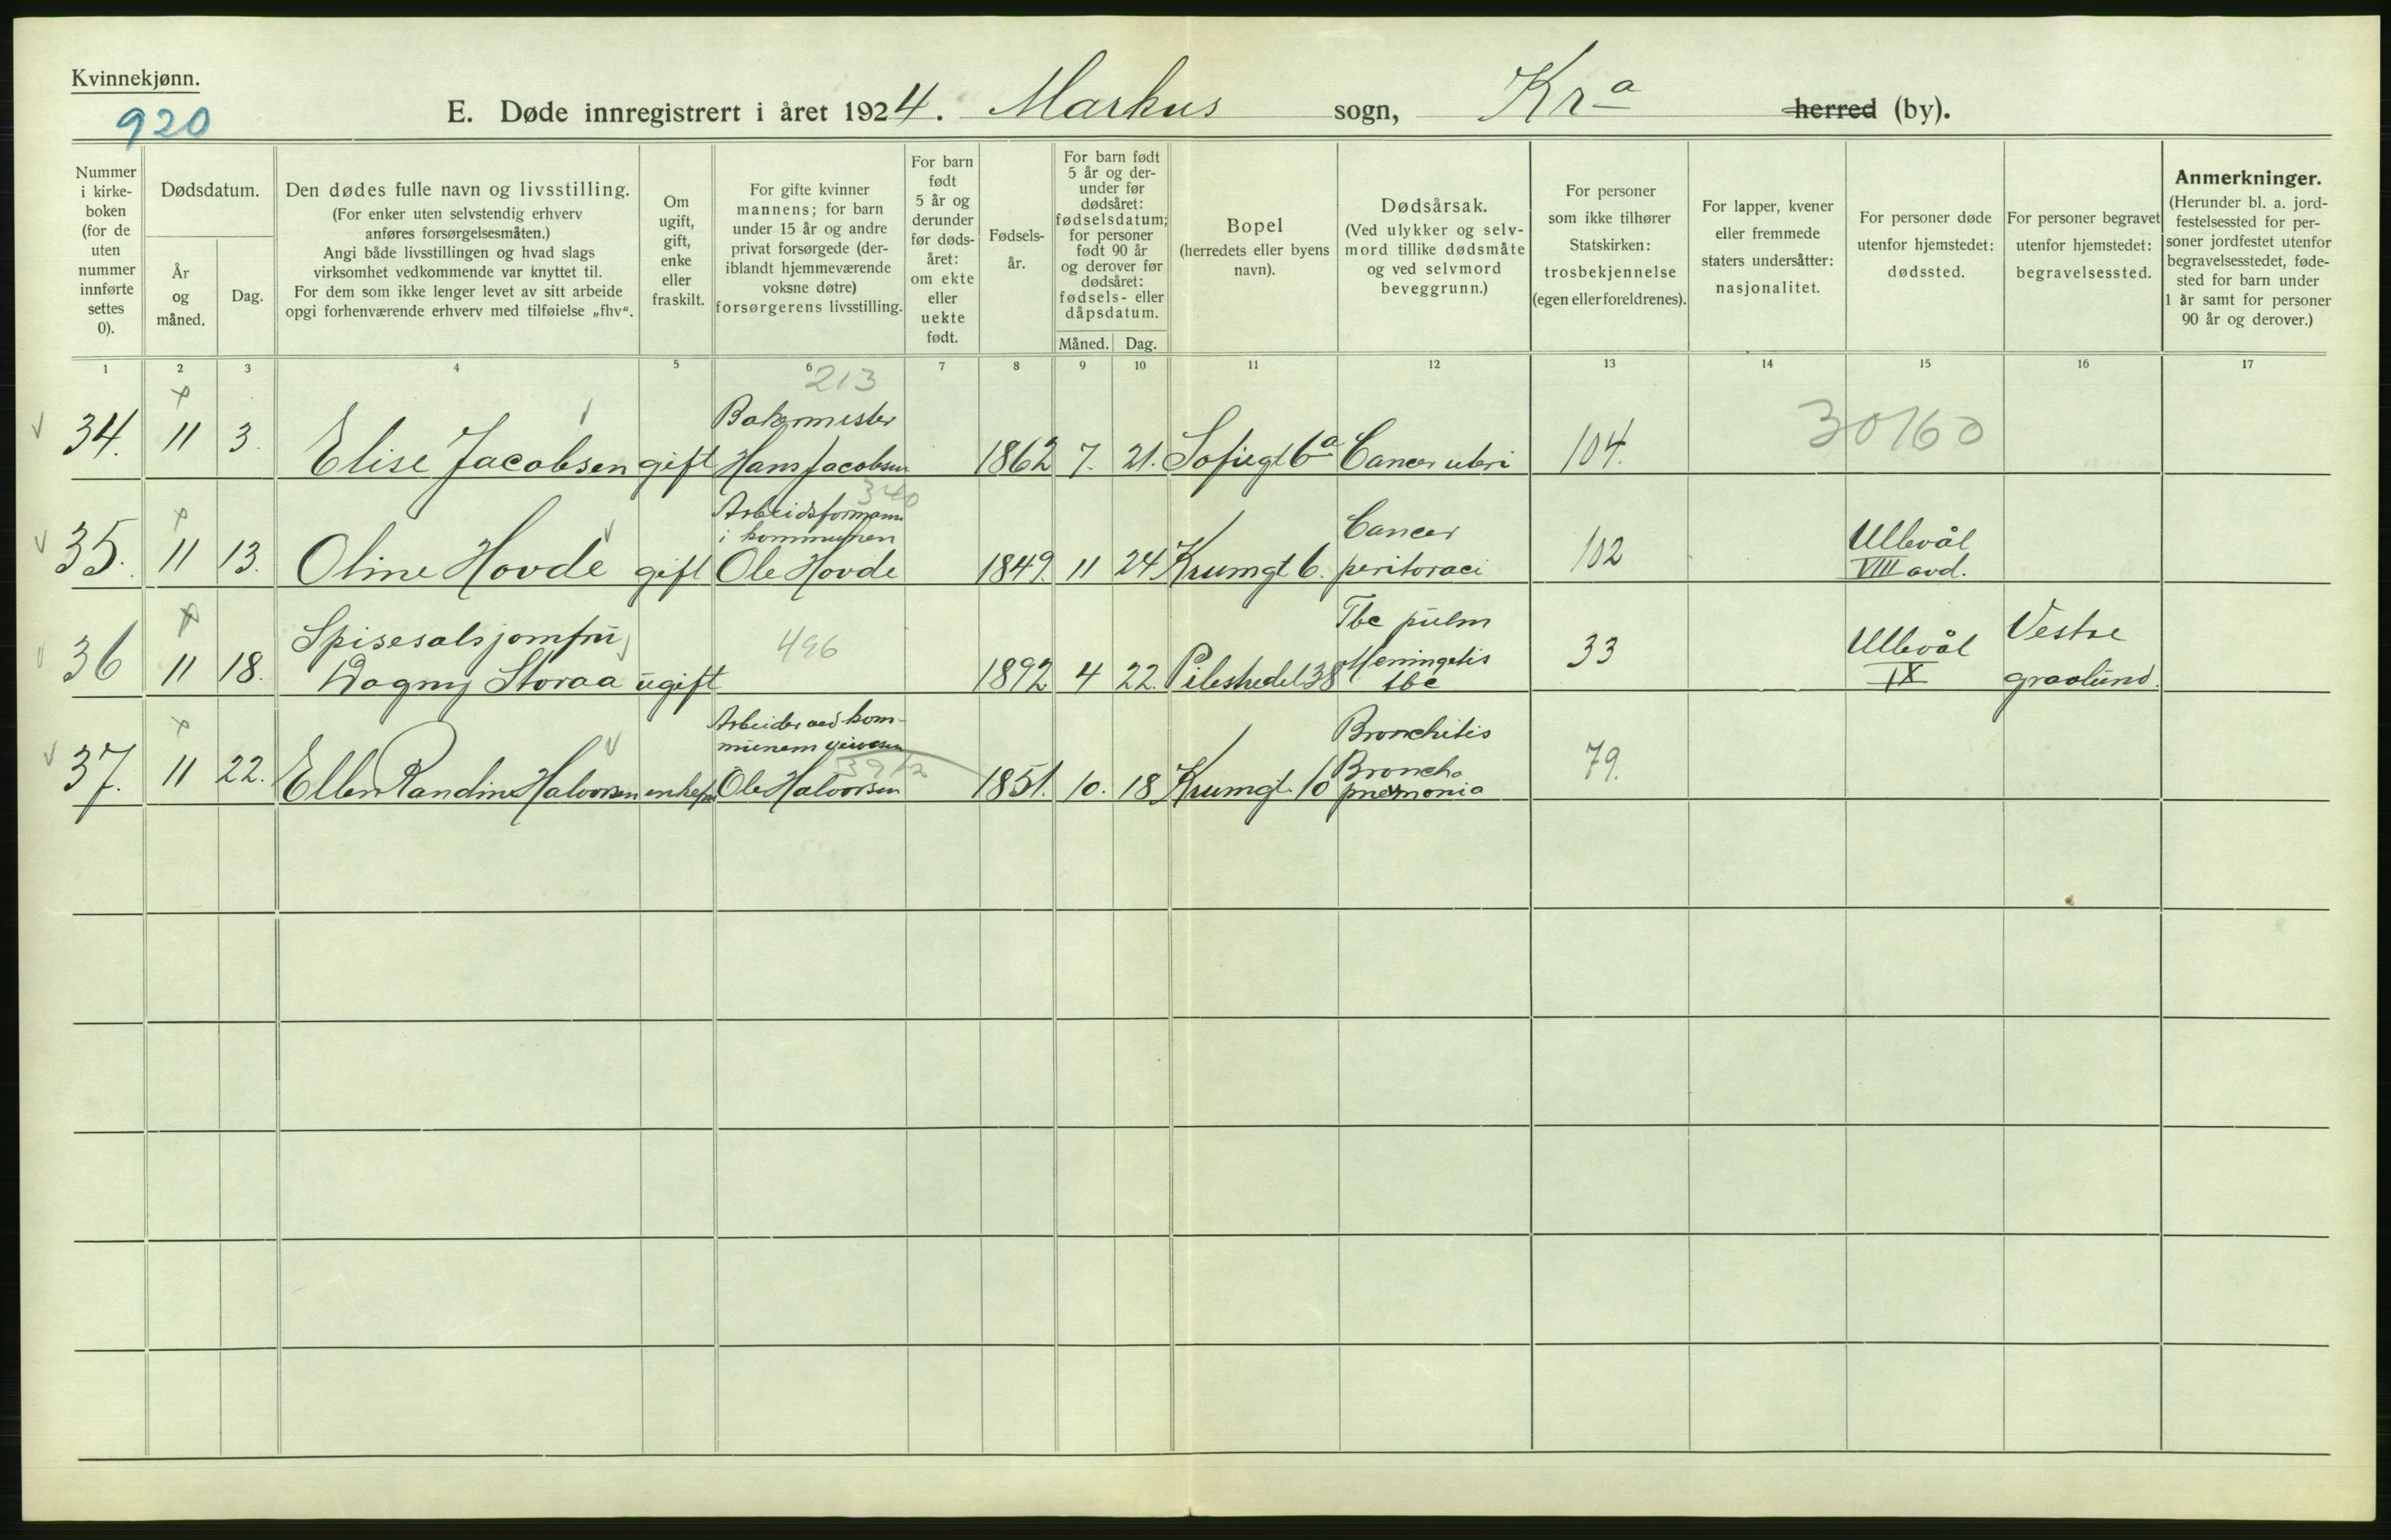 Kvinnekjønn.
920
E. Døde innregistrert i året 1924. Markus sogn, Kra herred (by).
Nummer
i kirke-
boken
(for de
uten
nummer
innførte
settes
0).
Dødsdatum.
År
og
måned.
Dag.
Den dødes fulle navn og livsstilling.
(For enker uten selvstendig erhverv
anføres forsørgelsesmåten.)
Angi både livsstillingen og hvad slags
virksomhet vedkommende var knyttet til.
For dem som ikke lenger levet av sitt arbeide
opgi forhenværende erhverv med tilføielse „fhv“.
Om
ugift,
gift,
enke
eller
fraskilt.
For gifte kvinner
mannens; for barn
under 15 år og andre
privat forsørgede (der-
iblandt hjemmeværende
voksne døtre)
forsørgerens livsstilling.
For barn
født
5 år og
derunder
før døds-
året:
om ekte
eller
uekte
født.
Fødsels-
år.
For barn født
5 år og der-
under før
dødsåret:
fødselsdatum;
for personer
født 90 år
og derover før
dødsåret:
fødsels- eller
dåpsdatum.
Måned.
Dag.
Bopel
(herredets eller byens
navn).
Dødsårsak.
(Ved ulykker og selv-
mord tillike dødsmåte
og ved selvmord
beveggrunn.)
For personer
som ikke tilhører
Statskirken:
trosbekjennelse
(egen eller foreldrenes).
For lapper, kvener
eller fremmede
staters undersåtter:
nasjonalitet.
For personer døde
utenfor hjemstedet:
dødssted.
For personer begravet
utenfor hjemstedet:
begravelsessted.
Anmerkninger.
(Herunder bl. a. jord-
festelsessted for per-
soner jordfestet utenfor
begravelsesstedet, føde-
sted for barn under
1 år samt for personer
90 år og derover.)
1 2 3 4 5 6 7 8 9 10 11 12 13 14 15 16 17
213
Bakermester
34. 11 3. Elise Jacobsen gift Hans Jacobsen 1862 7. 21. Sofiegt 6a Cancer uteri 104. 30160
340
Arbeidsformann
i kommunen
Cancer
Ullevål
35. 11 13. Oline Hovde gift Ole Hovde 1849. 11 24 Krumgt 6. peritoraei 102 VIII avd.
Spisesalsjomfru
496
Tbc pulm
Vestre
36 11 18. Dagny Storaa ugift 1892 4 22. Pilestredet 38 Meningitis 33 Ullevål
tbc
IX
gravlund.
Arbeider ved kom-
munens veivesen
Bronchitis
Broncho
37. 11 22. Ellen Randine Halvorsen enke Ole Halvorsen 1851. 10. 18 Krumgt. 10 pneumonia 79.